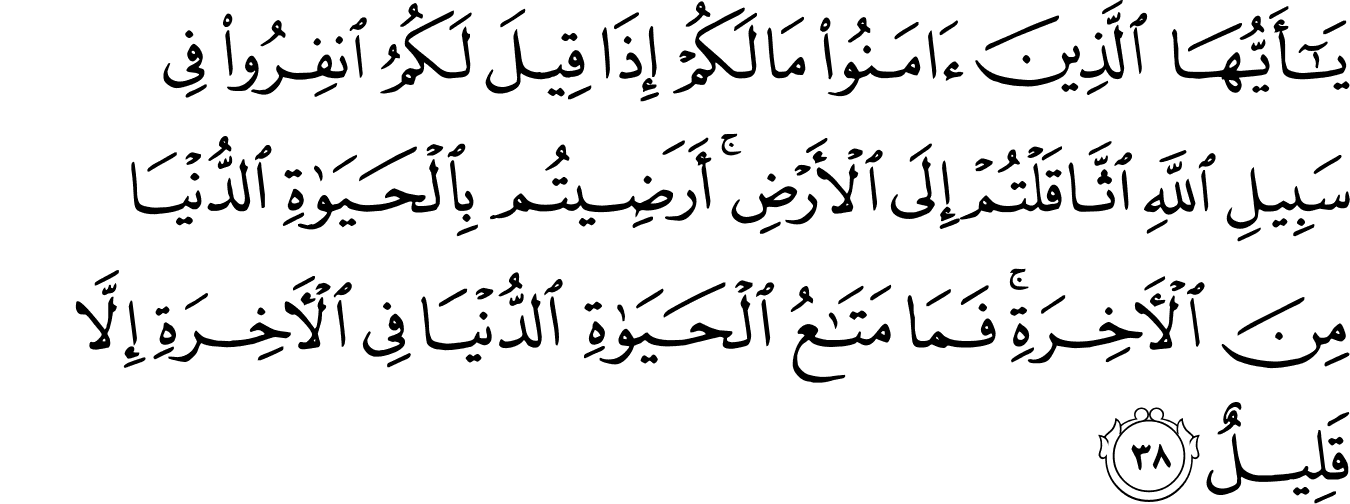 يَـٰٓأَيُّهَا ٱلَّذِينَ ءَامَنُوا۟ مَا لَكُمْ إِذَا قِيلَ لَكُمُ ٱنفِرُوا۟ فِى
سَبِيلِ ٱللَّهِ ٱثَّاقَلْتُمْ إِلَى ٱلْأَرْضِ ۚ أَرَضِيتُم بِٱلْحَيَوٰةِ ٱلدُّنْيَا
مِنَ ٱلْـَٔاخِرَةِ ۚ فَمَا مَتَـٰعُ ٱلْحَيَوٰةِ ٱلدُّنْيَا فِى ٱلْـَٔاخِرَةِ إِلَّا
قَلِيلٌ ٣٨